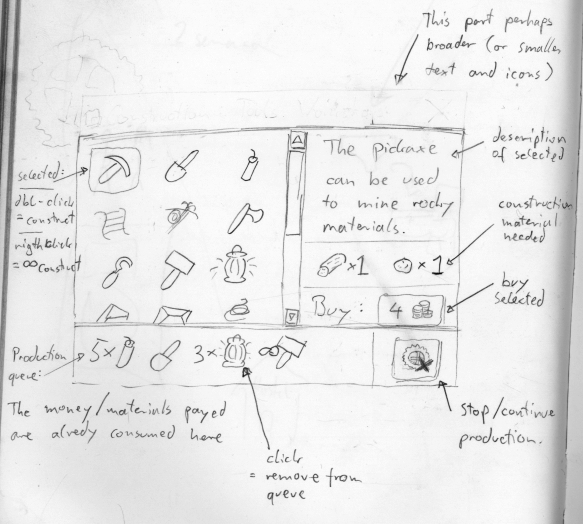 This part perhaps
broader (or smaller
text and icons)
selected:
dbl-click
= construct
rigthclick
= ∞ construct
The pickaxe
can be used
to mine rocky
materials.
description
of selected
construction
material
needed
×1 ×1
Buy: 4
buy
selected
Production
queue:
5× 3× ∞
The money/materials payed
are alredy consumed here
click
= remove from
queue
stop/continue
production.